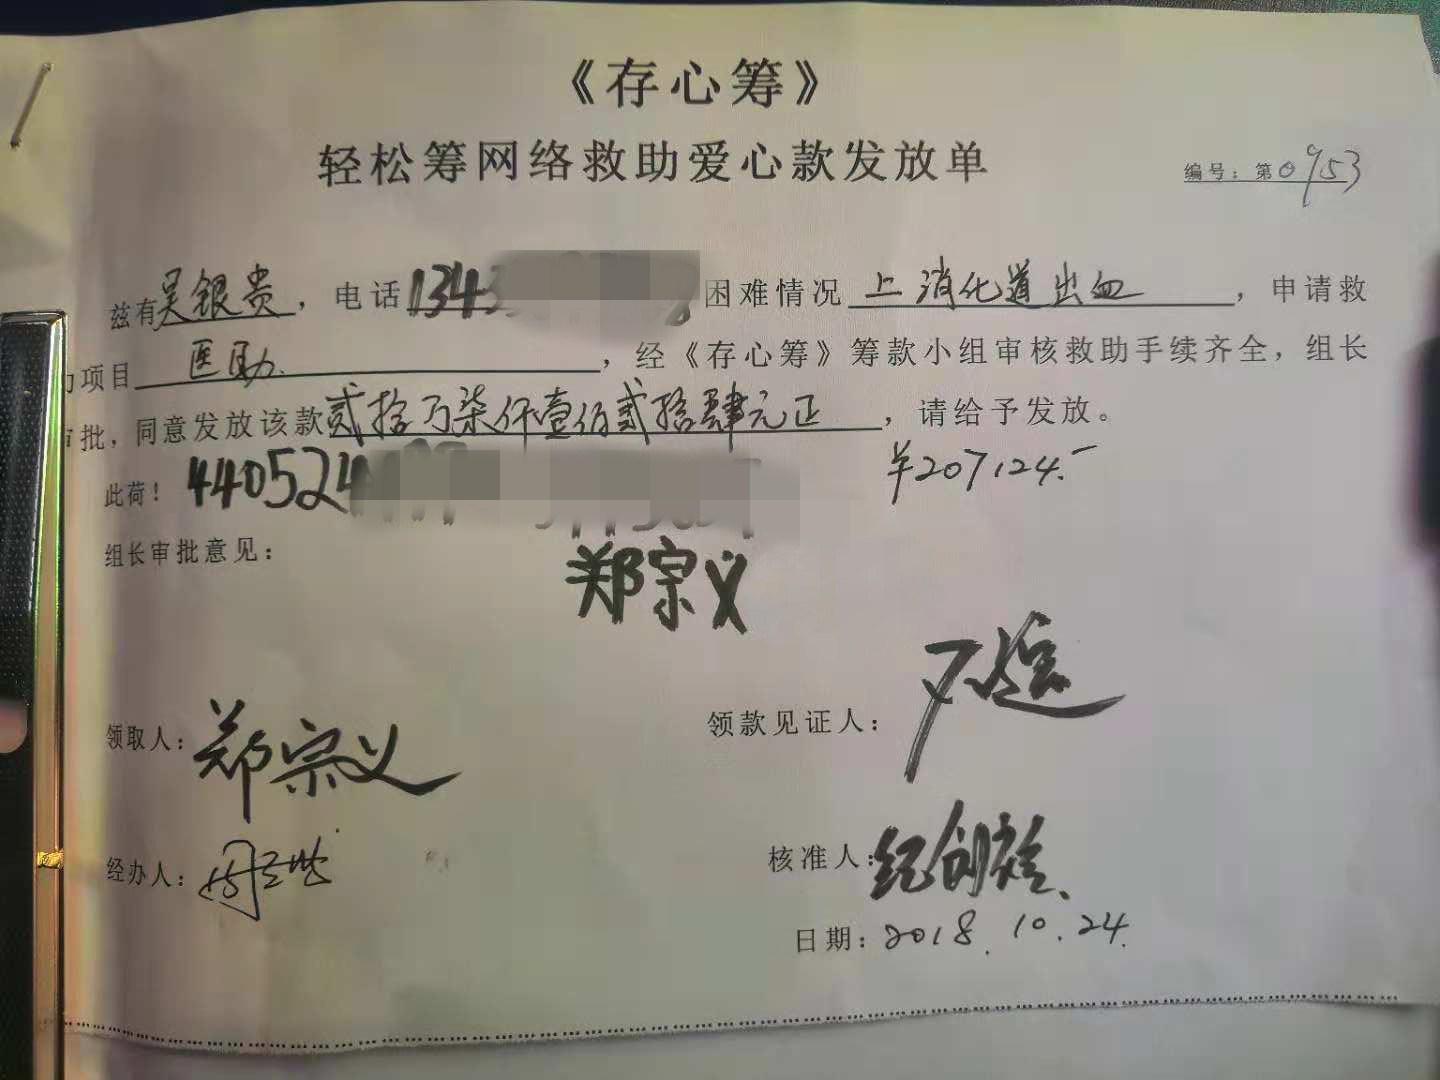 《存心筹》
轻松筹网络救助爱心款发放单
编号：第0953
兹有吴银贵，电话1343 困难情况上消化道出血，申请救
项目医助，经《存心筹》筹款小组审核救助手续齐全，组长
审批，同意发放该款贰拾万柒仟壹佰贰拾肆元正，请给予发放。
此荷！440524 ￥207124.-
组长审批意见：郑宗义
领取人：郑宗义 领款见证人：
经办人： 核准人：
日期：2018.10.24.